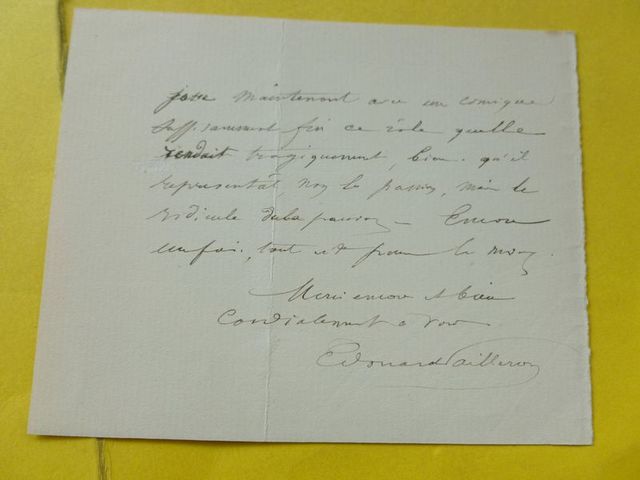 joue maintenant avec un comique
suffisamment fin ce rôle quelle
rendait tragiquement, bien qu'il
représentât, non la passion, mais le
ridicule de la passion — Encore
une fois, tout est pour le mieux.
Merci encore et bien
Cordialement à vous
Edouard Pailleron